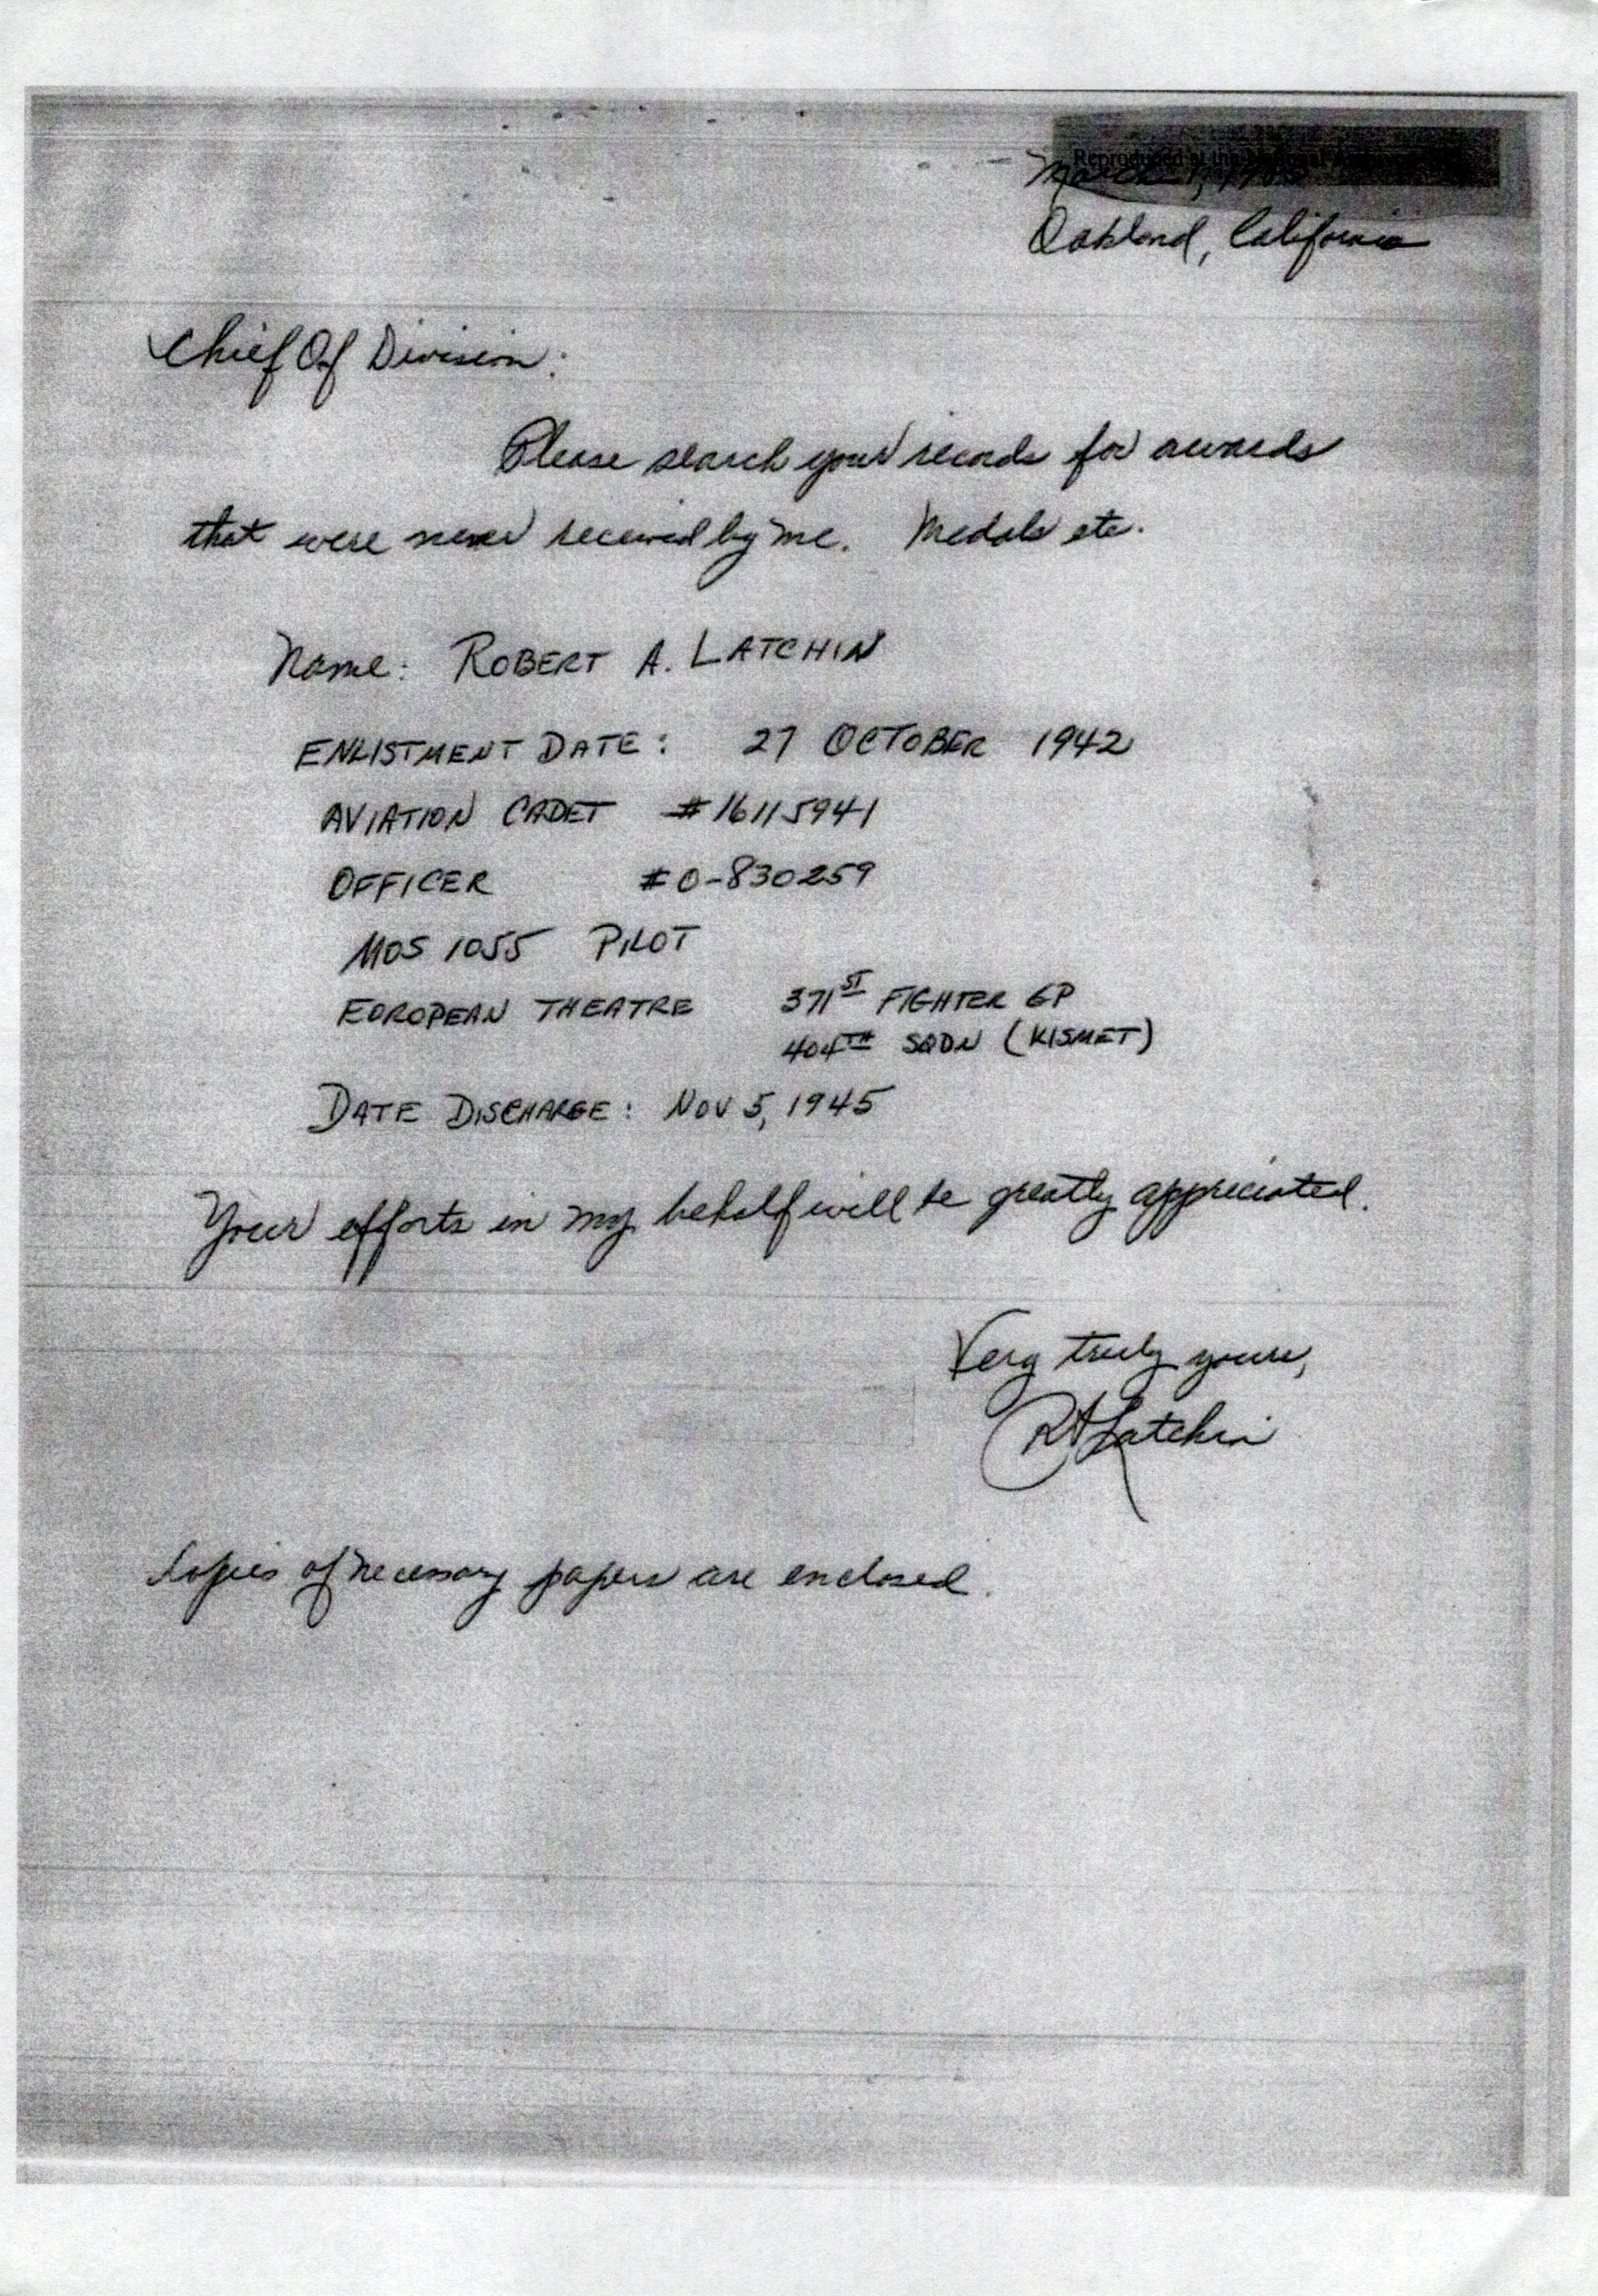 Reproduced at the National
March 1,
Oakland, California
Chief Of Division:
Please search your records for awards
that were never received by me. Medals etc.
Name: ROBERT A. LATCHIN
ENLISTMENT DATE: 27 OCTOBER 1942
AVIATION CADET #16115941
OFFICER #O-830259
MOS 1055 PILOT
EUROPEAN THEATRE 371ST FIGHTER GP
404TH SQDN (KISMET)
DATE DISCHARGE: NOV 5, 1945
Your efforts in my behalf will be greatly appreciated.
Very truly yours,
RALatchin
Copies of necessary papers are enclosed.